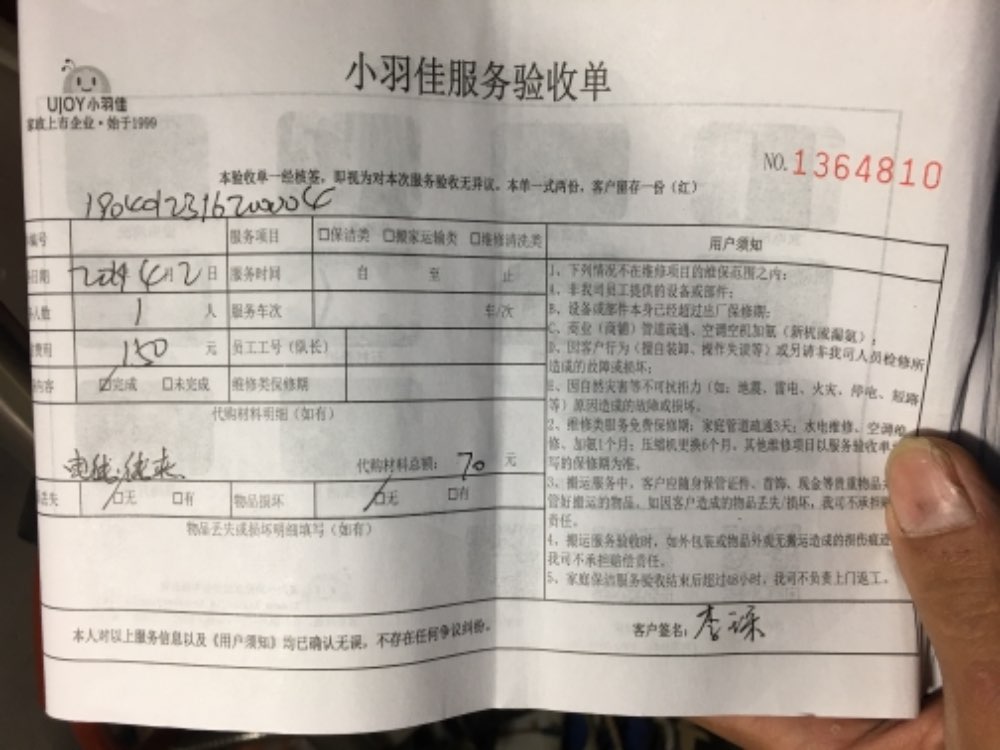 小羽佳服务验收单
UJOY小羽佳
家政上市企业·始于1999
NO.1364810
本验收单一经核签,即视为对本次服务验收无异议。本单一式两份,客户留存一份(红)
编号 服务项目 □保洁类 □搬家运输类 □维修清洗类
日期 4月2日 服务时间 自 至 止
人数 1 人 服务车次 车/次
费用 150 元 员工工号(队长)
内容 □完成 □未完成 维修类保修期
代购材料明细(如有)
电线
代购材料总额: 70 元
丢失 □无 □有 物品损坏 □无 □有
物品丢失或损坏明细填写(如有)
用户须知
1、下列情况不在维修项目的维保范围之内:
A、非我司员工提供的设备或部件;
B、设备或部件本身已经超过出厂保修期;
C、商业(商铺)管道疏通、空调空机加氨(新机或漏氨);
D、因客户行为(擅自装卸、操作失误等)或另请非我司人员检修所
造成的故障或损坏;
E、因自然灾害等不可抗拒力(如:地震、雷电、火灾、停电、短路
等)原因造成的故障或损坏。
2、维修类服务免费保修期:家庭管道疏通3天;水电维修、空调维
修、加氨1个月;压缩机更换6个月。其他维修项目以服务验收单
写的保修期为准。
3、搬运服务中,客户应随身保管证件、首饰、现金等贵重物品
管好搬运的物品。如因客户造成的物品丢失/损坏,我司不承担
责任。
4、搬运服务验收时,如外包装或物品外观无搬运造成的损伤痕迹
我司不承担赔偿责任。
5、家庭保洁服务验收结束后超过48小时,我司不负责上门返工。
本人对以上服务信息以及《用户须知》均已确认无误,不存在任何争议纠纷。
客户签名:李